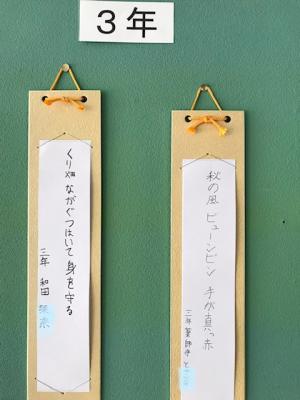 ３年
秋の風 ビューンビン 手が真っ赤
三年
くり畑 ながぐつはいて 身を守る
三年 和田